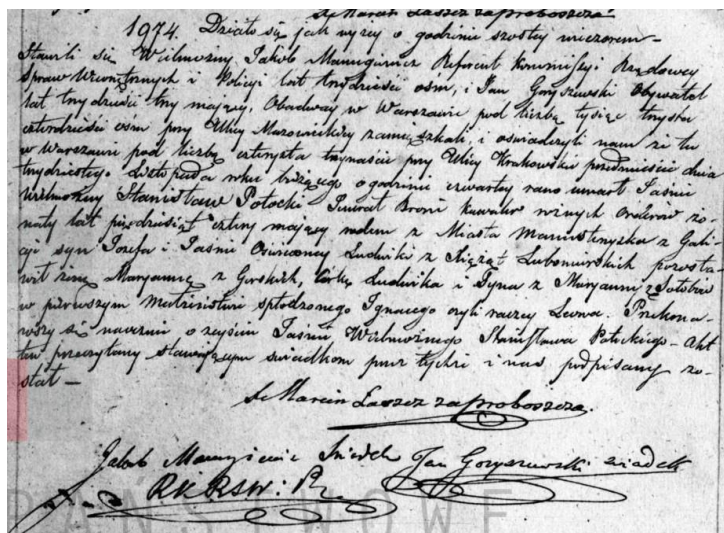 X Marcin Laszcz zaproboszcza
1974. Działo się jak wyżey o godzinie szóstey wieczorem –
Stawili się Wielmożny Jakób Referent Kommissyi Rządowey
Spraw Wewnętrznych i Policyi lat trzydzieści ośm, i Jan Goryszewski Obywatel
lat trzydzieści trzy maiący, Obadway w Warszawie pod liczbą tysiąc trzysta
czterdzieści ośm przy Ulicy Mazowieckiey zamieszkali, i oświadczyli nam że tu
w Warszawie pod liczbą czterysta trzynaście przy Ulicy Krakowskie przedmieście dnia
trzydziestego Listopada roku bieżącego o godzinie czwartey rano umarł Jaśnie
Wielmożny Stanisław Potocki Jenerał Broni Kawaler różnych Orderów żo-
naty lat pięćdziesiąt cztery maiący rodem z Miasta z Gali-
cyi syn Józefa i Jaśnie Oświeconey Ludwiki z Xiążąt Lubomirskich pozosta-
wił żonę Maryannę z Gorskich, Córkę Ludwika i Syna z Maryanny
w pierwszym Małżeństwie spłodzonego Ignacego czyli raczey Leona. Przekona-
wszy się naocznie o zejściu Jaśnie Wielmożnego Stanisława Potockiego – Akt
ten przeczytany stawaiącym świadkom przez tychże i nas podpisany zo-
stał –
X Marcin Laszcz zaproboszcza.
Jakób Świadek Jan Goryszewski świadek
PAŃSTWOWE